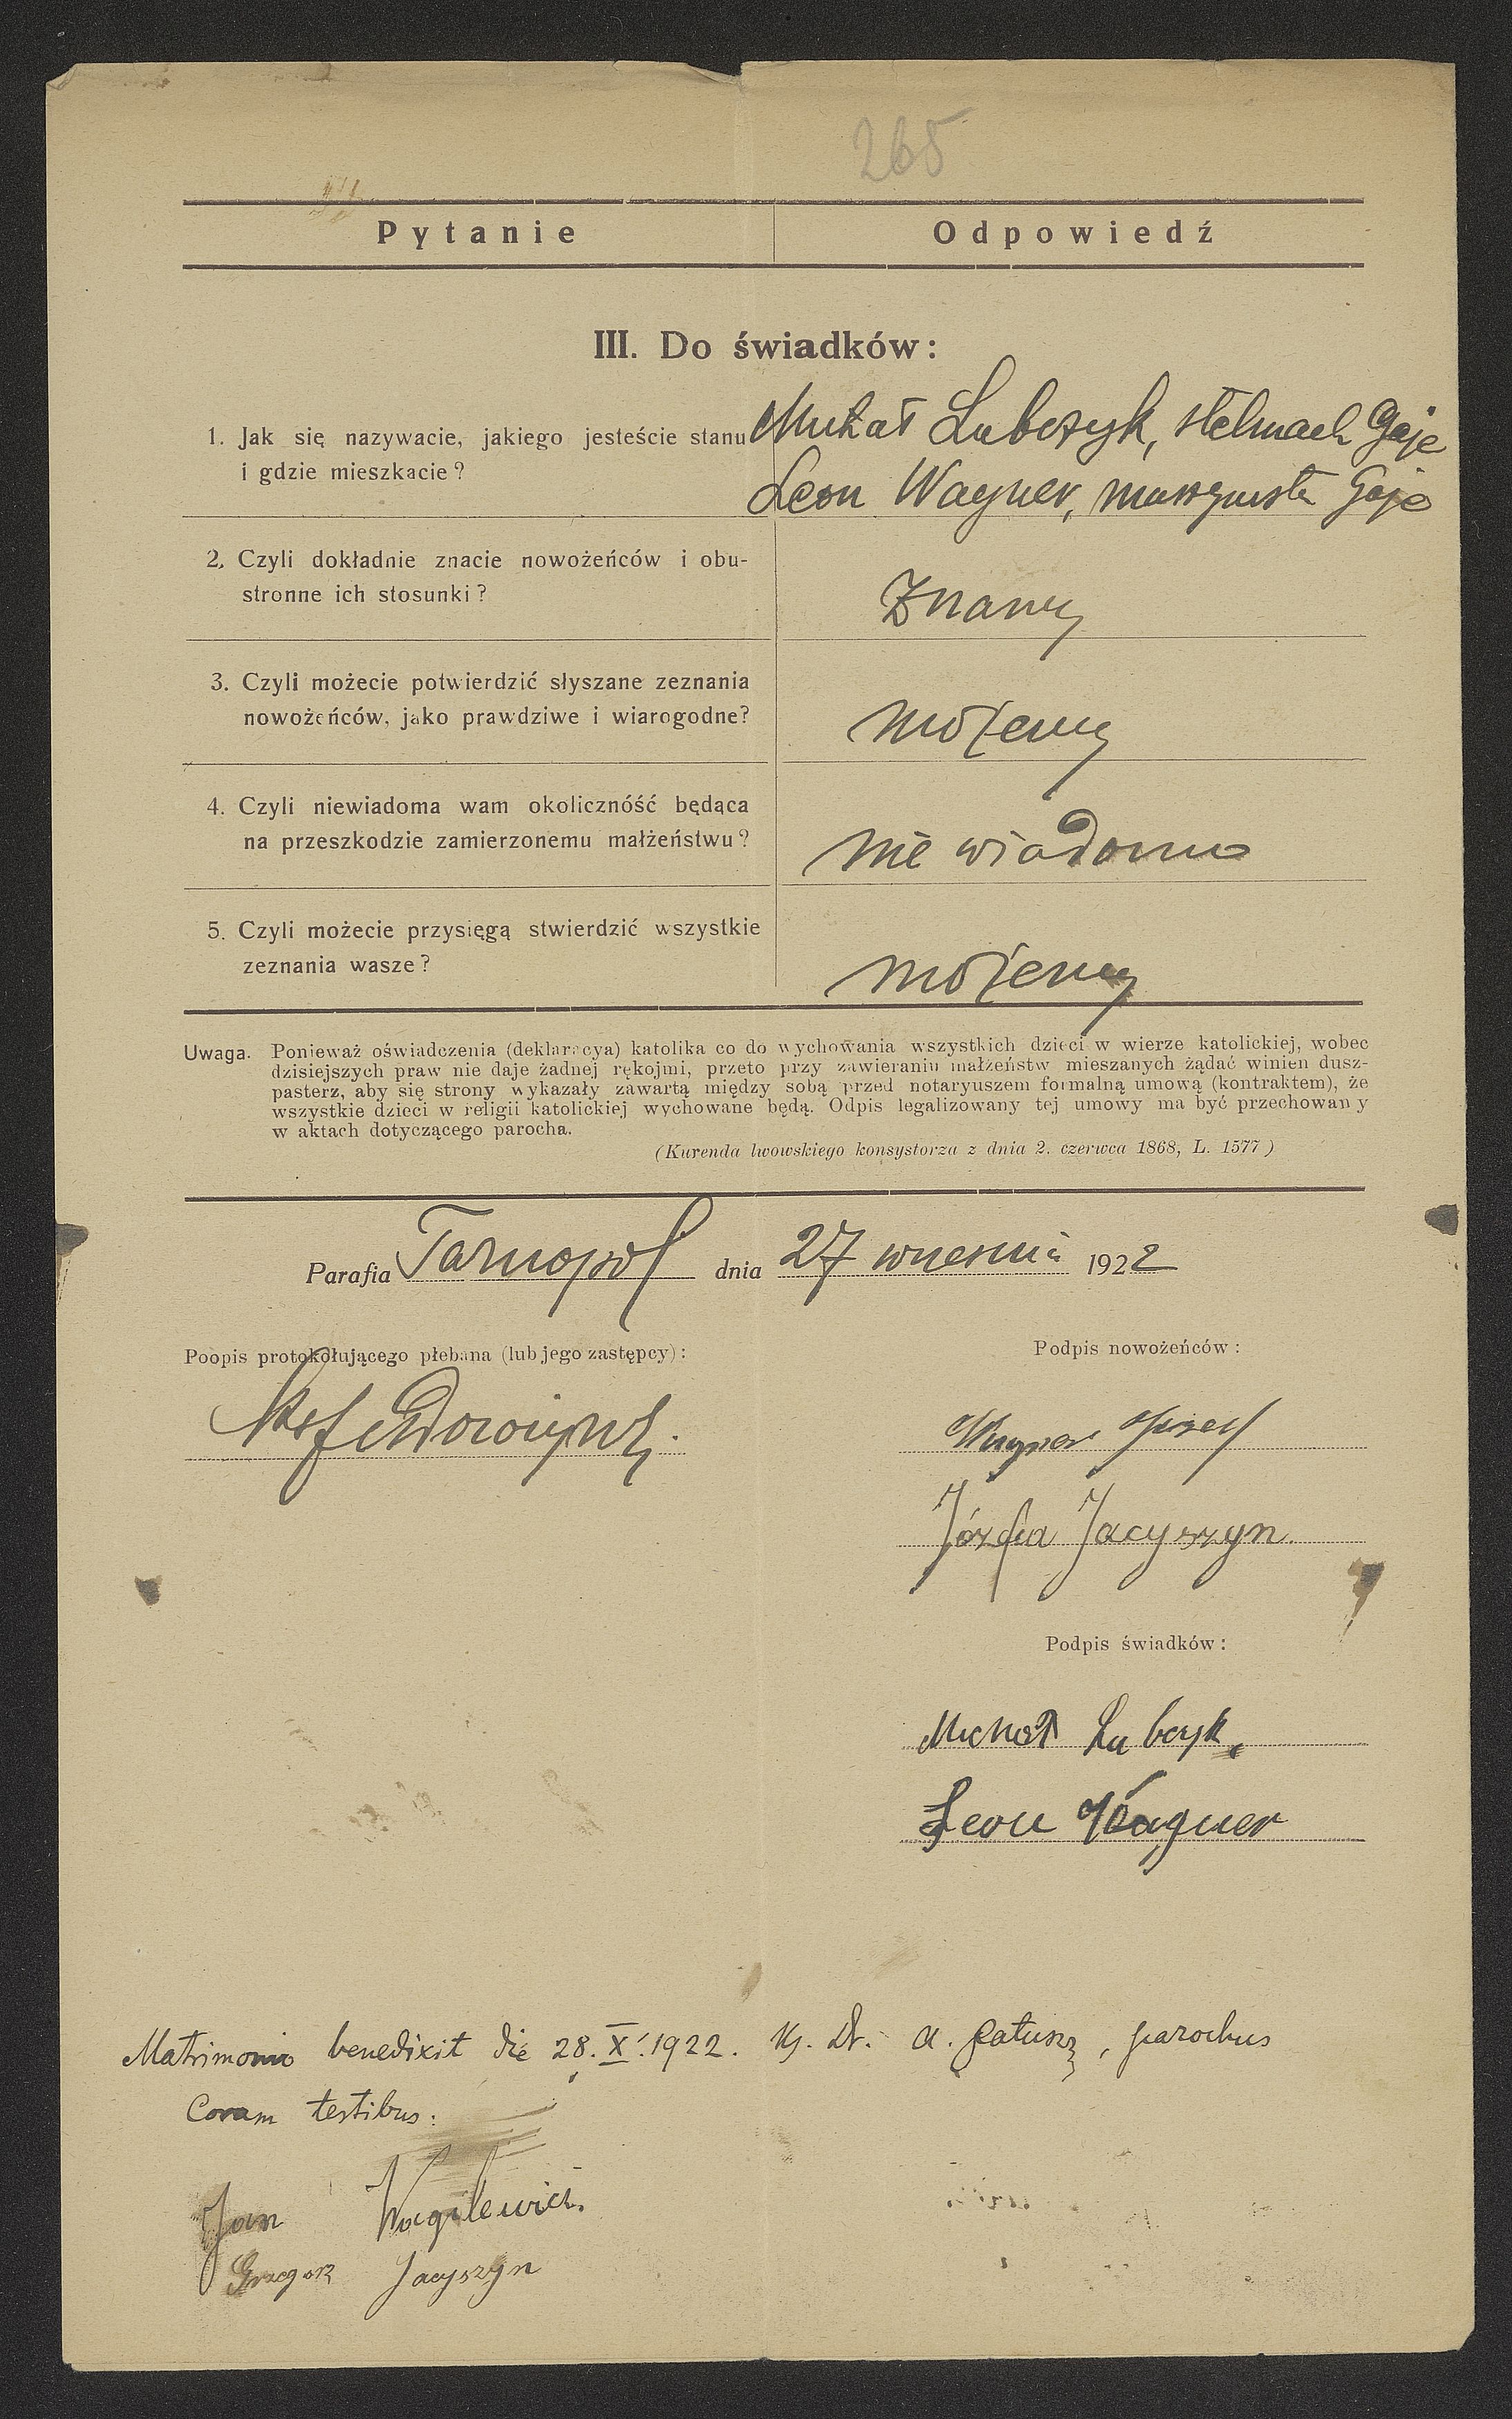 265
Pytanie Odpowiedź
III. Do świadków:
1. Jak się nazywacie, jakiego jesteście stanu
i gdzie mieszkacie?
Michał Lubczyk, stelmach Gaje
Leon Wagner, maszynista Gaje
2. Czyli dokładnie znacie nowożeńców i obu-
stronne ich stosunki?
Znamy
3. Czyli możecie potwierdzić słyszane zeznania
nowożeńców, jako prawdziwe i wiarogodne?
możemy
4. Czyli niewiadoma wam okoliczność będąca
na przeszkodzie zamierzonemu małżeństwu?
nie wiadoma
5. Czyli możecie przysięgą stwierdzić wszystkie
zeznania wasze?
możemy
Uwaga. Ponieważ oświadczenia (deklaracya) katolika co do wychowania wszystkich dzieci w wierze katolickiej, wobec
dzisiejszych praw nie daje żadnej rękojmi, przeto przy zawieraniu małżeństw mieszanych żądać winien dusz-
pasterz, aby się strony wykazały zawartą między sobą przed notaryuszem formalną umową (kontraktem), że
wszystkie dzieci w religii katolickiej wychowane będą. Odpis legalizowany tej umowy ma być przechowany
w aktach dotyczącego parocha.
(Kurenda lwowskiego konsystorza z dnia 2. czerwca 1868, L. 1577)
Parafia Tarnopol dnia 27 września 1922
Poopis protokołującego plebana (lub jego zastępcy):
Podpis nowożeńców:
Wagner Józef
Józefa Jacyszyn.
Podpis świadków:
Michał Lubczyk
Leon Wagner
Matrimonio benedixit die 28. X. 1922. Ks. Dr. A. , parochus
Coram testibus:
Jan
Grzegorz Jacyszyn